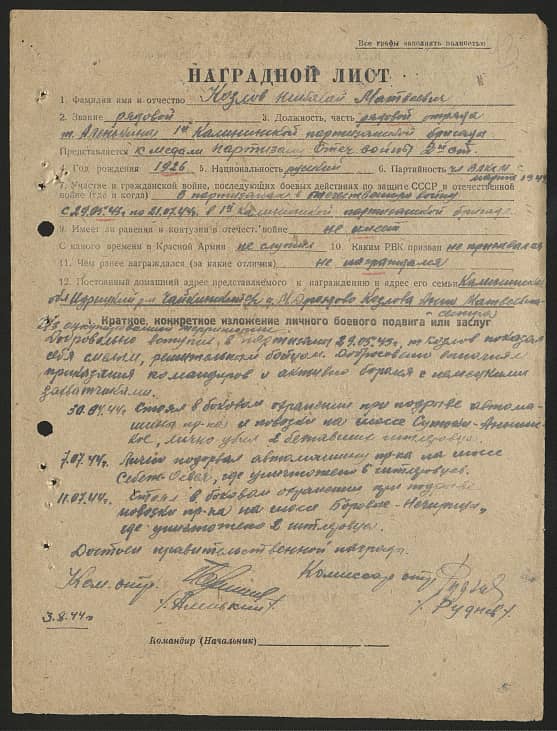 Все графы заполнять полностью
НАГРАДНОЙ ЛИСТ
1. Фамилия имя и отчество Козлов Матвеевич
2. Звание рядовой 3. Должность, часть рядовой отряда
1й Калининской партизанской бригады
Представляется к медали партизану Отеч войны 2й ст.
4. Год рождения 1926 5. Национальность русский 6. Партийность чл ВЛКСМ с
марта 194
7. Участие в гражданской войне, последующих боевых действиях по защите СССР и отечественной
войне (где и когда) в партизанах в отечественную войну
с 29.05.43г по 21.07.44г. в 1й калининской партизанской бригаде
9. Имеет ли ранения и контузии в отечест. войне не имеет
С какого времени в Красной Армии не служил 10. Каким РВК призван не призывался
11. Чем ранее награждался (за какие отличия) не награждался
12. Постоянный домашний адрес представляемого к награждению и адрес его семьи Калининская
обл Идрицкий р-н д. М. Дроздово Козлова Матвеевна-
сестра
1. Краткое, конкретное изложение личного боевого подвига или заслуг
Добровольно вступив в партизаны 29.05.43г. т. Козлов показал
себя смелым, решительным бойцом. Добросовестно выполнял
приказания командиров и активно боролся с немецкими
захватчиками.
30.04.44г. Стоял в боковом охранении при подрыве автома-
шины пр-ка и повозки на шоссе
лично убил 2 бегавших гитлеровца.
7.07.44г. Лично подорвал автомашину пр-ка на шоссе
Себеж-Освея, где уничтожено 6 гитлеровцев.
11.07.44г. Стоял в боковом охранении при подрыве
повозки пр-ка на шоссе
где уничтожено 2 гитлеровца.
Достоин правительственной награды.
Ком. отр. Комиссар отр. Руднев
/Руднев/
3.8.44г.
Командир (Начальник)